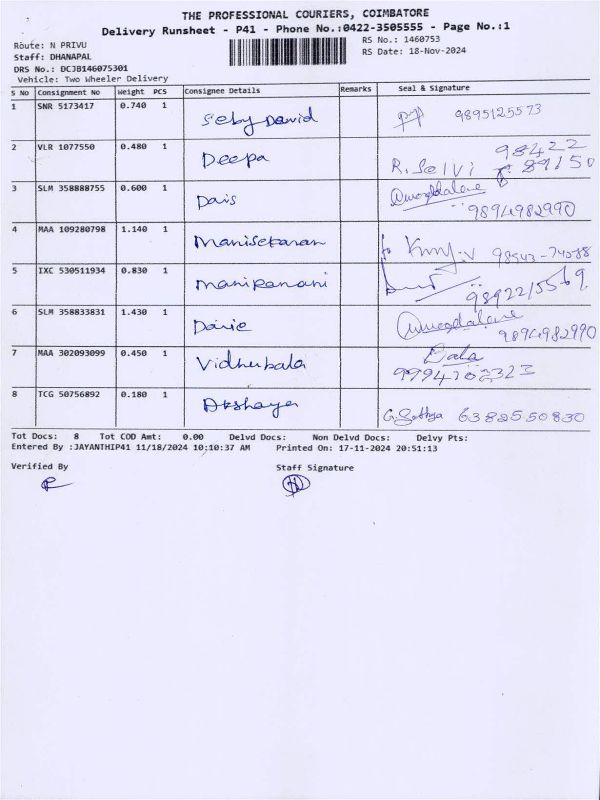 THE PROFESSIONAL COURIERS, COIMBATORE
Delivery Runsheet - P41 - Phone No.:0422-3505555 - Page No.:1
Route: N PRIVU
RS No.: 1460753
Staff: DHANAPAL
RS Date: 18-Nov-2024
DRS No.: DCJB146075301
Vehicle: Two Wheeler Delivery
S No Consignment No Weight PCS Consignee Details Remarks Seal & Signature
1 SNR 5173417 0.740 1 Seby David 9895125573
2 VLR 1077550 0.480 1 Deepa R. Selvi 98422 89150
3 SLM 358888755 0.600 1 Dais 9894982990
4 MAA 109280798 1.140 1 Manisekaran 98543-74588
5 IXC 530511934 0.830 1 9892215569
6 SLM 358833831 1.430 1 9894982990
7 MAA 302093099 0.450 1 Vidhubala Bala
8 TCG 50756892 0.180 1 Akshaya G. Sathya 6382550830
Tot Docs: 8 Tot COD Amt: 0.00 Delvd Docs: Non Delvd Docs: Delvy Pts:
Entered By :JAYANTHIP41 11/18/2024 10:10:37 AM Printed On: 17-11-2024 20:51:13
Verified By Staff Signature